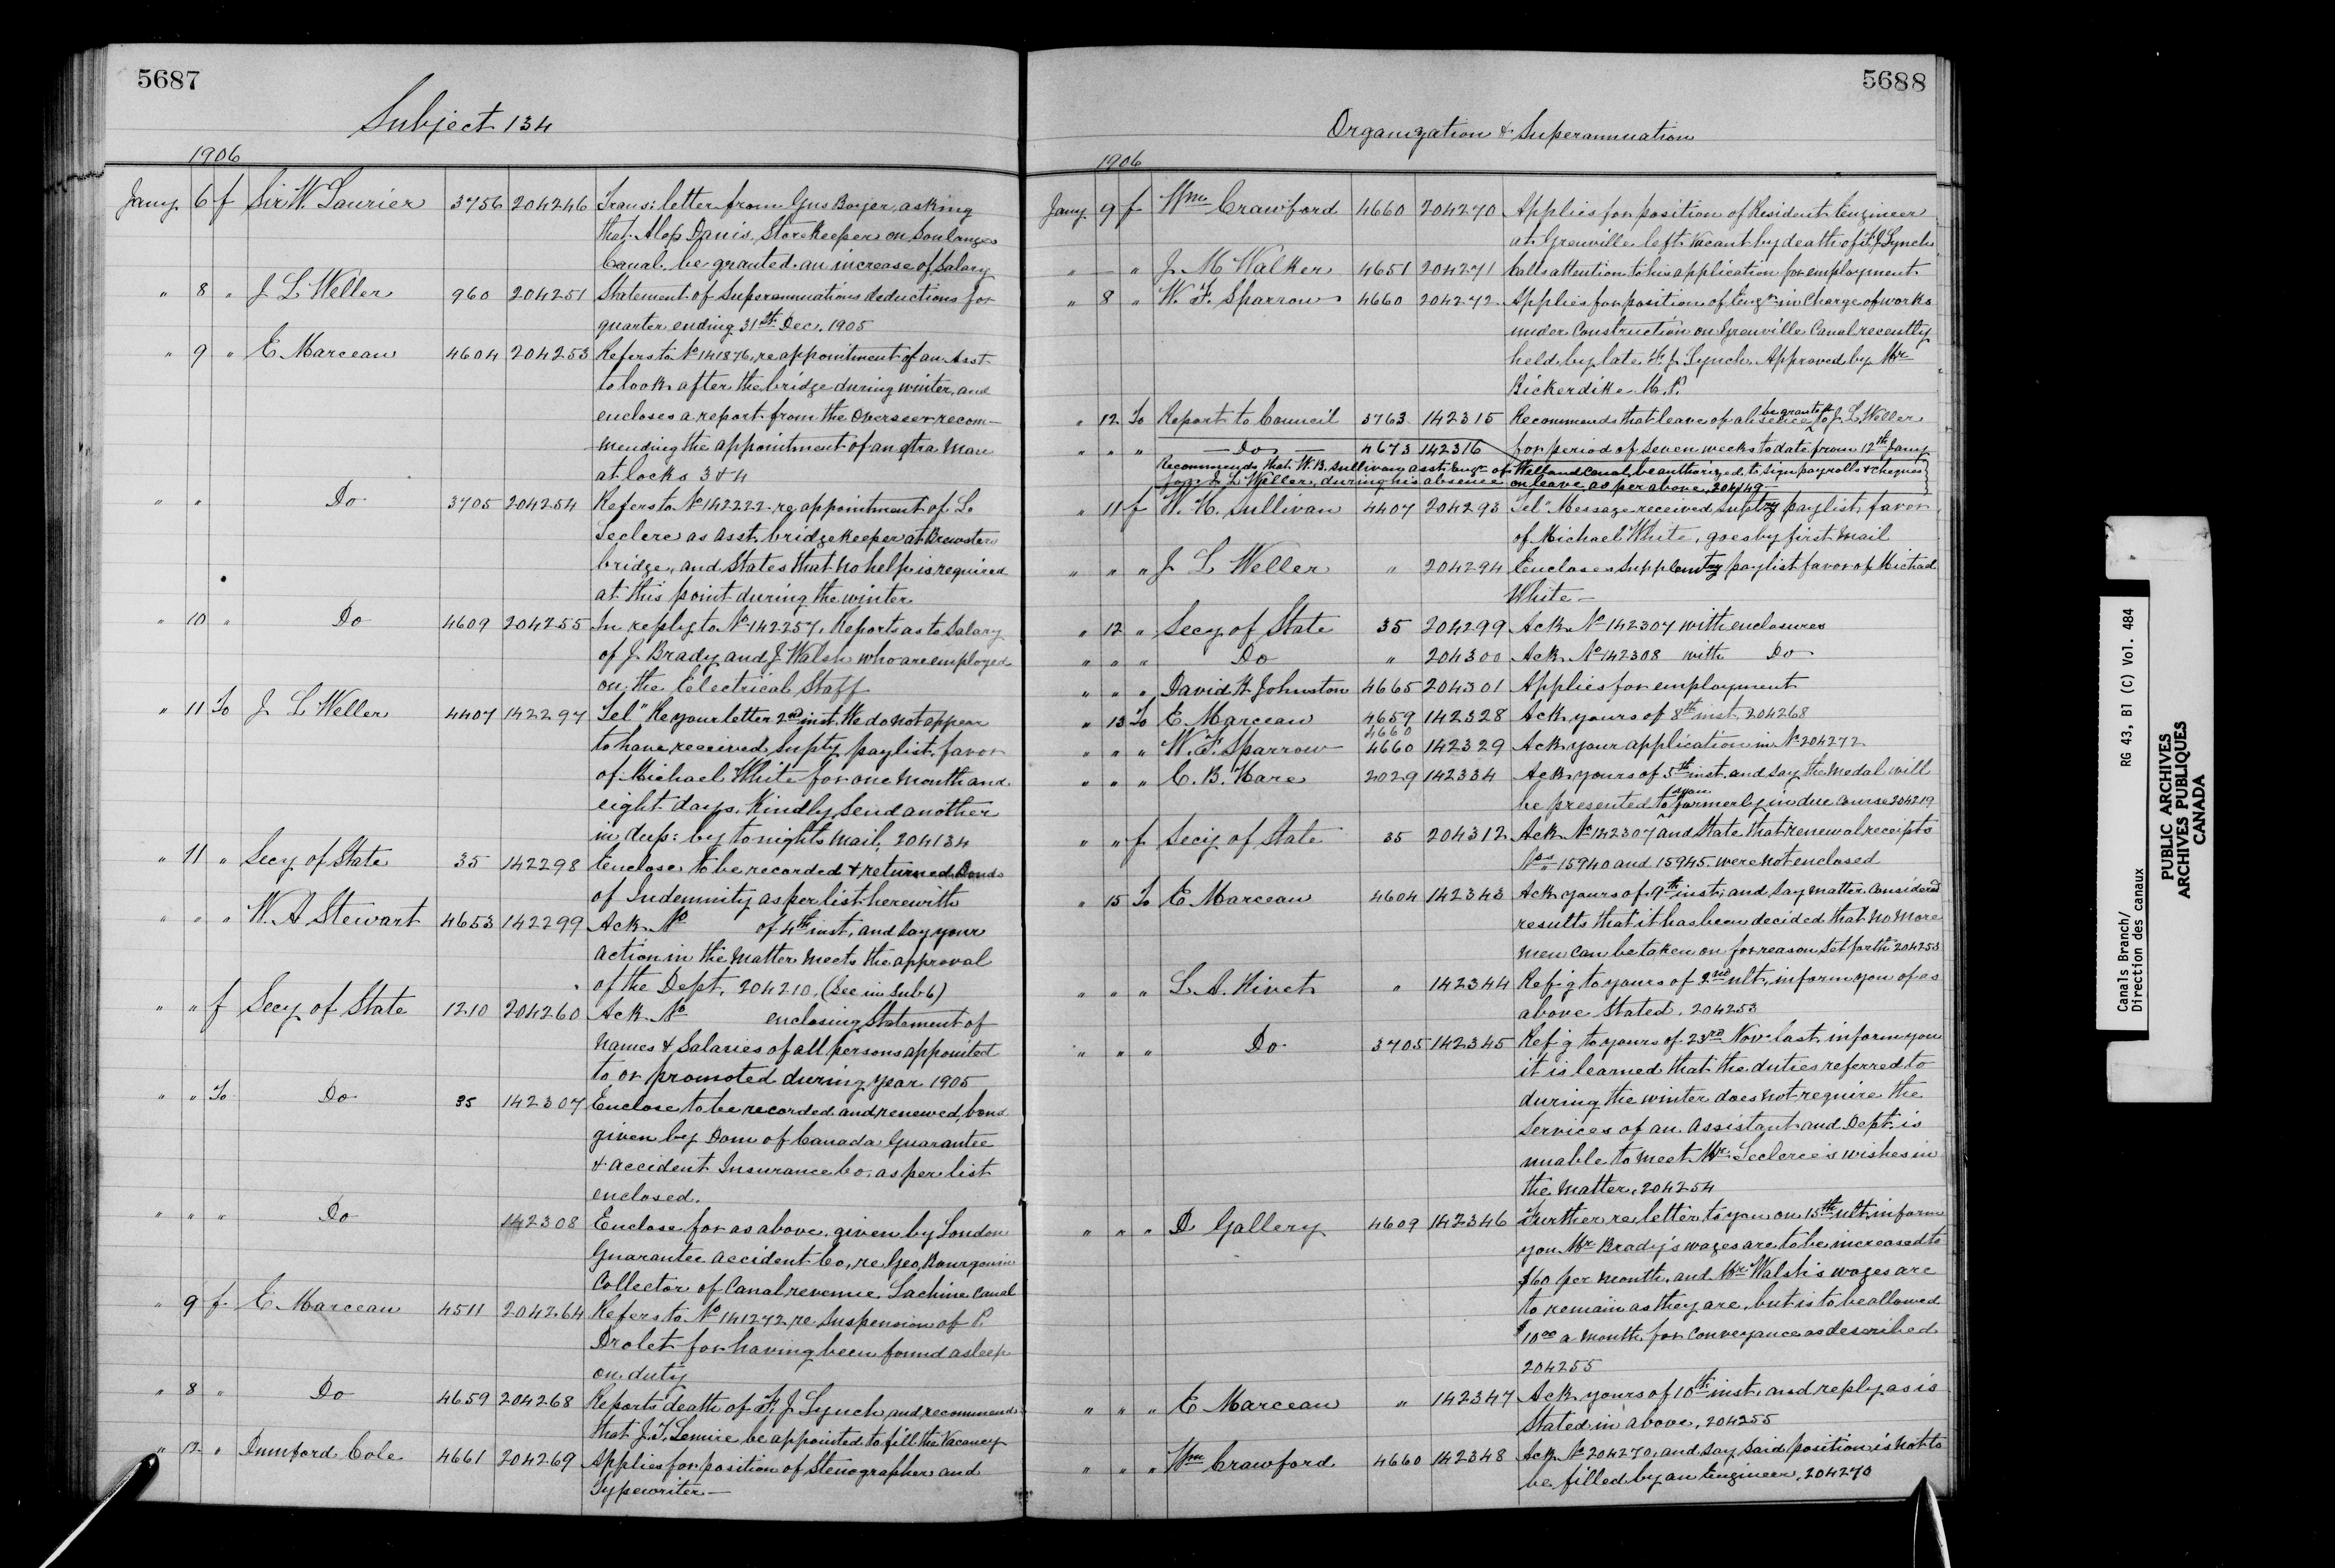 5687
Subject 134
1906
Jany 6 f Sir W. Laurier 3756 204246 Trans: letter from Gus Boyer, asking
that Alop Danis, Storekeeper on Soulanges
Canal, be granted an increase of Salary
" 8 " J L Weller 960 204251 Statement of Superannuations deductions for
quarter ending 31st Dec. 1905
" 9 " E. Marceau 4604 204253 Refers to No 141876, re appointment of an Asst
to look after the bridge during winter, and
encloses a report from the Overseer recom-
mending the appointment of an xtra man
at locks 3 & 4
" " Do 3705 204254 Refers to No 142222 re appointment of L.
Leclere as asst. bridgekeeper at Brewsters
bridge, and States that no help is required
at this point during the winter
" 10 " Do 4609 204255 In reply to No 142257, Reports as to Salary
of J. Brady and J. Walsh who are employed
on the Electrical Staff
" 11 To J L Weller 4407 142297 Tel" Re your letter 2nd inst. We do not appear
to have received Supty paylist, favor
of Michael White for one month and
eight days. Kindly Send another
in dup: by tonights mail, 204134
" 11 " Secy of State 35 142298 Enclose to be recorded & returned Bonds
of Indemnity as per list herewith
" " " W. A Stewart 4653 142299 Ack No of 4th inst, and Say your
action in the matter meets the approval
of the Dept, 204210. (See in Sub 6)
" " f Secy of State 1210 204260 Ack No enclosing Statement of
names & Salaries of all persons appointed
to or promoted during year 1905
" " To Do 35 142307 Enclose to be recorded and renewed, bond
given by Dom of Canada Guarantee
& accident Insurance Co. as per list
enclosed.
" " " Do 142308 Enclose for as above, given by London
Guarantee accident Co, re Geo, Bourgouin
Collector of Canal revenue, Lachine Canal
" 9 f E. Marceau 4511 204264 Refers to No 141272, re Suspension of P.
Drolet for having been found asleep
on duty
" 8 " Do 4659 204268 Reports death of F. J Lynch and recommends
that J. T. Lemire be appointed to fill the Vacancy
" 12 " Dunford Cole 4661 204269 Applies for position of Stenographer and
Typewriter —
5688
Organization & Superannuation
1906
Jany 9 f Wm Crawford 4660 204270 Applies for position of Resident Engineer
at Grenville left vacant by death of F. J Lynch
" — " J. M Walker 4651 204271 Calls attention to his application for employment
" 8 " W. F. Sparrow 4660 204272 Applies for position of Engr in Charge of works
under Construction on Grenville Canal recently
held by late F. J Lynch. Approved by Mr
Bickerdike M.P.
" 12 To Report to Council 3763 142315 Recommends that leave of absence be granted to J. L Weller
" " " — Do — 4673 142316 for period of Seven weeks to date from 12th Jany
Recommends that W. B. Sullivan asst: Engr of Welland Canal, be authorized, to sign payrolls & cheques
for J. L Weller, during his absence on leave, as per above, 204149 —
" 11 f W. H. Sullivan 4407 204293 Tel" Message received, suptry paylist, favor
of Michael White, goes by first mail
" " " J L Weller " 204294 Encloses Supplemtry paylist favor of Michael
White —
" 12 " Secy of State 35 204299 Ack No 142307 with enclosures
" " " Do " 204300 Ack No 142308 with Do
" " " David H Johnston 4665 204301 Applies for employment
" 13 To E. Marceau 4659 142328 Ack yours of 8th inst, 204268
4660
" " " W. F. Sparrow 4660 142329 Ack your application in No 204272
" " " C. B. Hare 2029 142334 Ack yours of 5th inst. and Say the Medal will
be presented to you formerly in due course 204219
" " f Secy of State 35 204312 Ack No 142307 and State that renewal receipts
Nos 15940 and 15945 were not enclosed
" 15 To E. Marceau 4604 142343 Ack yours of 9th inst; and Say matter Considered
results that it has been decided that no more
men can be taken on for reason set forth 204253
" " " L. A. Rivet " 142344 Ref-g to yours of 2nd ult, inform you of as
above Stated, 204253
" " " Do 3705 142345 Ref-g to yours of 23rd Nov last, inform you
it is learned that the duties referred to
during the winter does not require the
Services of an Assistant and Dept: is
unable to meet Mr Leclerc's wishes in
the matter, 204254
" " " D Gallery 4609 142346 Further re letter to you on 15th ult, inform
you Mr Brady's wages are to be increased to
$60 per month, and Mr Walsh's wages are
to remain as they are, but is to be allowed
$10.00 a month for conveyance as described
204255
" " " E Marceau " 142347 Ack yours of 10th inst. and reply as is
Stated in above, 204255
" " " Wm Crawford 4660 142348 Ack No 204270, and Say Said position is not to
be filled by an Engineer, 204270
Canals Branch/ RG 43, B1 (C) Vol. 484
Direction des canaux
PUBLIC ARCHIVES
ARCHIVES PUBLIQUES
CANADA